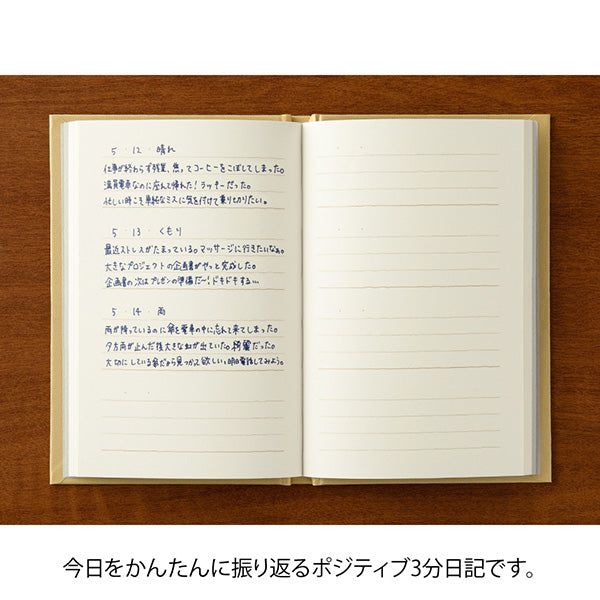 5・12・晴れ
仕事が終わらず残業、焦ってコーヒーをこぼしてしまった。
満員電車なのに座って帰れた!ラッキーだった。
忙しい時こそ単純なミスに気を付けて乗り切りたい。
5・13・くもり
最近ストレスがたまっている。マッサージに行きたいなぁ。
大きなプロジェクトの企画書がやっと完成した。
企画書の次はプレゼンの準備だー!ドキドキする…
5・14・雨
雨が降っているのに傘を電車の中に忘れて来てしまった。
夕方雨が止んだ後大きな虹が出ていた。綺麗だった。
大切にしている傘だから見つかって欲しい。明日電話してみよう。
今日をかんたんに振り返るポジティブ3分日記です。